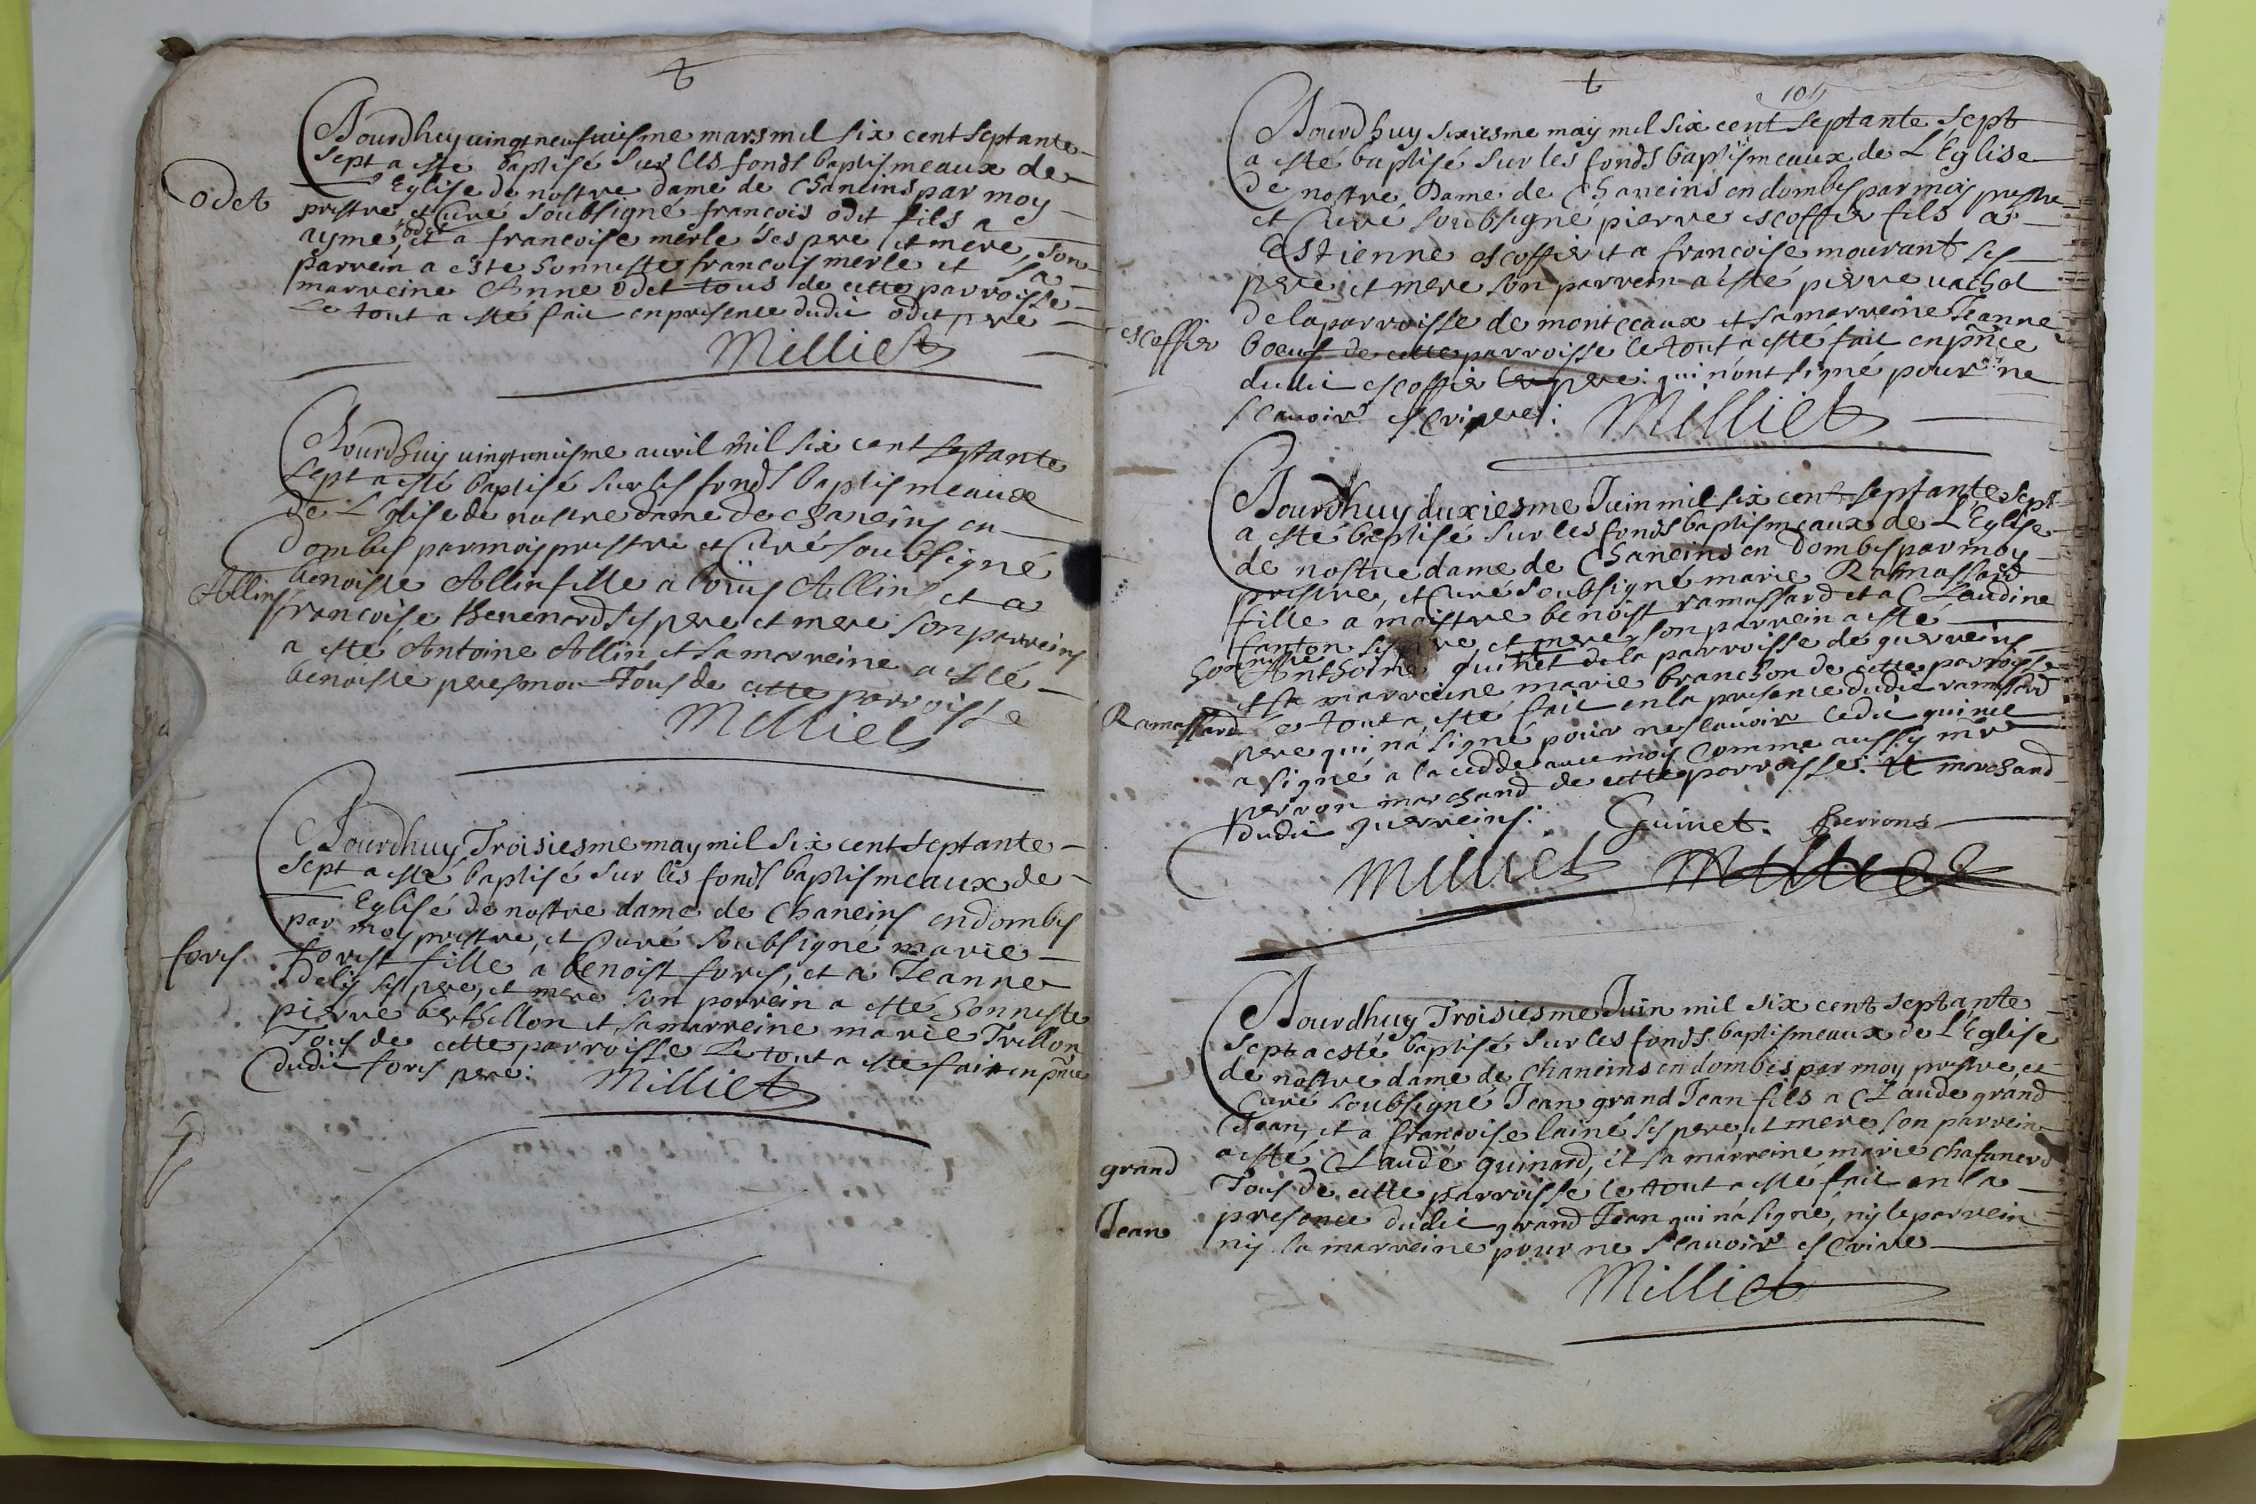 Aourdhuy uingt neufuiesme mars mil six cent septante
sept a esté baptisé sur les fonds baptismeaux de
l'Eglise de nostre dame de Chaneins par moy
Odet
prestre, et Curé soubsigné francois odet fils a
aymé odet, et a francoise merle ses pere et mere, son
parrein a este honneste francois merle et sa
marreine Anne Odet tous de cette parroisse
Le tout a esté fait en presence dudit odet pere
Milliet
Aourdhuy uingtoniesme auril mil six cent septante
sept a esté baptisé sur les fonds baptismeaux
de L'Eglise de nostre dame de chaneins en
Dombes par moy prestre et Curé soubsigné
benoiste Allin fille a Loüis Allin et a
Allin
francoise theuenard ses pere et mere son parrein
a esté Antoine Allin et sa marreine a esté
benoiste Tous de cette parroisse
Milliet
Aourdhuy Troisiesme may mil six cent septante
sept a esté baptisé sur les fonds baptismeaux de
l'Eglise de nostre dame de Chaneins en dombes
par moy prestre, et Curé soubsigné marie
fores
forest fille a benoist fores, et a Jeanne
delis ses pere, et mere son parrein a esté honneste
pierre berthillon et sa marreine marie Trillon
Tous de cette parroisse Le tout a esté fait en pnce
dudit fores pere:
Milliet
104
Aourdhuy sixiesme may mil six cent septante sept
a esté baptisé sur les fonds baptismeaux de L'Eglise
de nostre Dame de Chaneins en dombes par moy prestre
et Curé soubsigné pierre escoffier fils a
Estienne escoffier et a francoise mourant ses
pere et mere son parrein a esté pierre uachot
de la parroisse de montceaux et sa marreine Jeanne
escoffier
boeuf de cette parroisse le tout a esté fait en pnce
dudit escoffier pere: qui n'ont signé pour ne
scauoir escripre:
Milliet
Aourdhuy duxiesme Juin mil six cent septante sept
a esté baptisé sur les fonds baptismeaux de L'Eglise
de nostre dame de Chaneins en Dombes par moy
prestre, et Curé soubsigné marie Ramassard
fille a maistre benoist ramassard et a Claudine
fanton ses pere et mere son parrein a esté
honneste Anthoine guinet de la parroisse de guerreins
et sa marreine marie branchon de cette parroisse
Ramassard
le tout a esté fait en la presence dudit ramassard
pere qui n'a signé pour ne scauoir ledit guinet
a signé a la cedde auec moy Comme aussy mre
perron marchand de cette parroisse: et marchand
dudit guerreins:
Guinet. Perrons
Milliet Milliet
Aourdhuy Troisiesme Juin mil six cent septante
sept a esté baptisé sur les fonds baptismeaux de L'Eglise
de nostre dame de Chaneins en dombes par moy prestre, et
Curé soubsigné Jean grand Jean fils a Claude grand
Jean, et a francoise lainé ses pere, et mere son parrein
grand
a esté Claude guinard, et sa marreine marie
Tous de cette parroisse le tout a esté fait en la
Jean
presence dudit grand Jean qui n'a signé, ny le parrein
ny la marreine pour ne scauoir escrire
Milliet